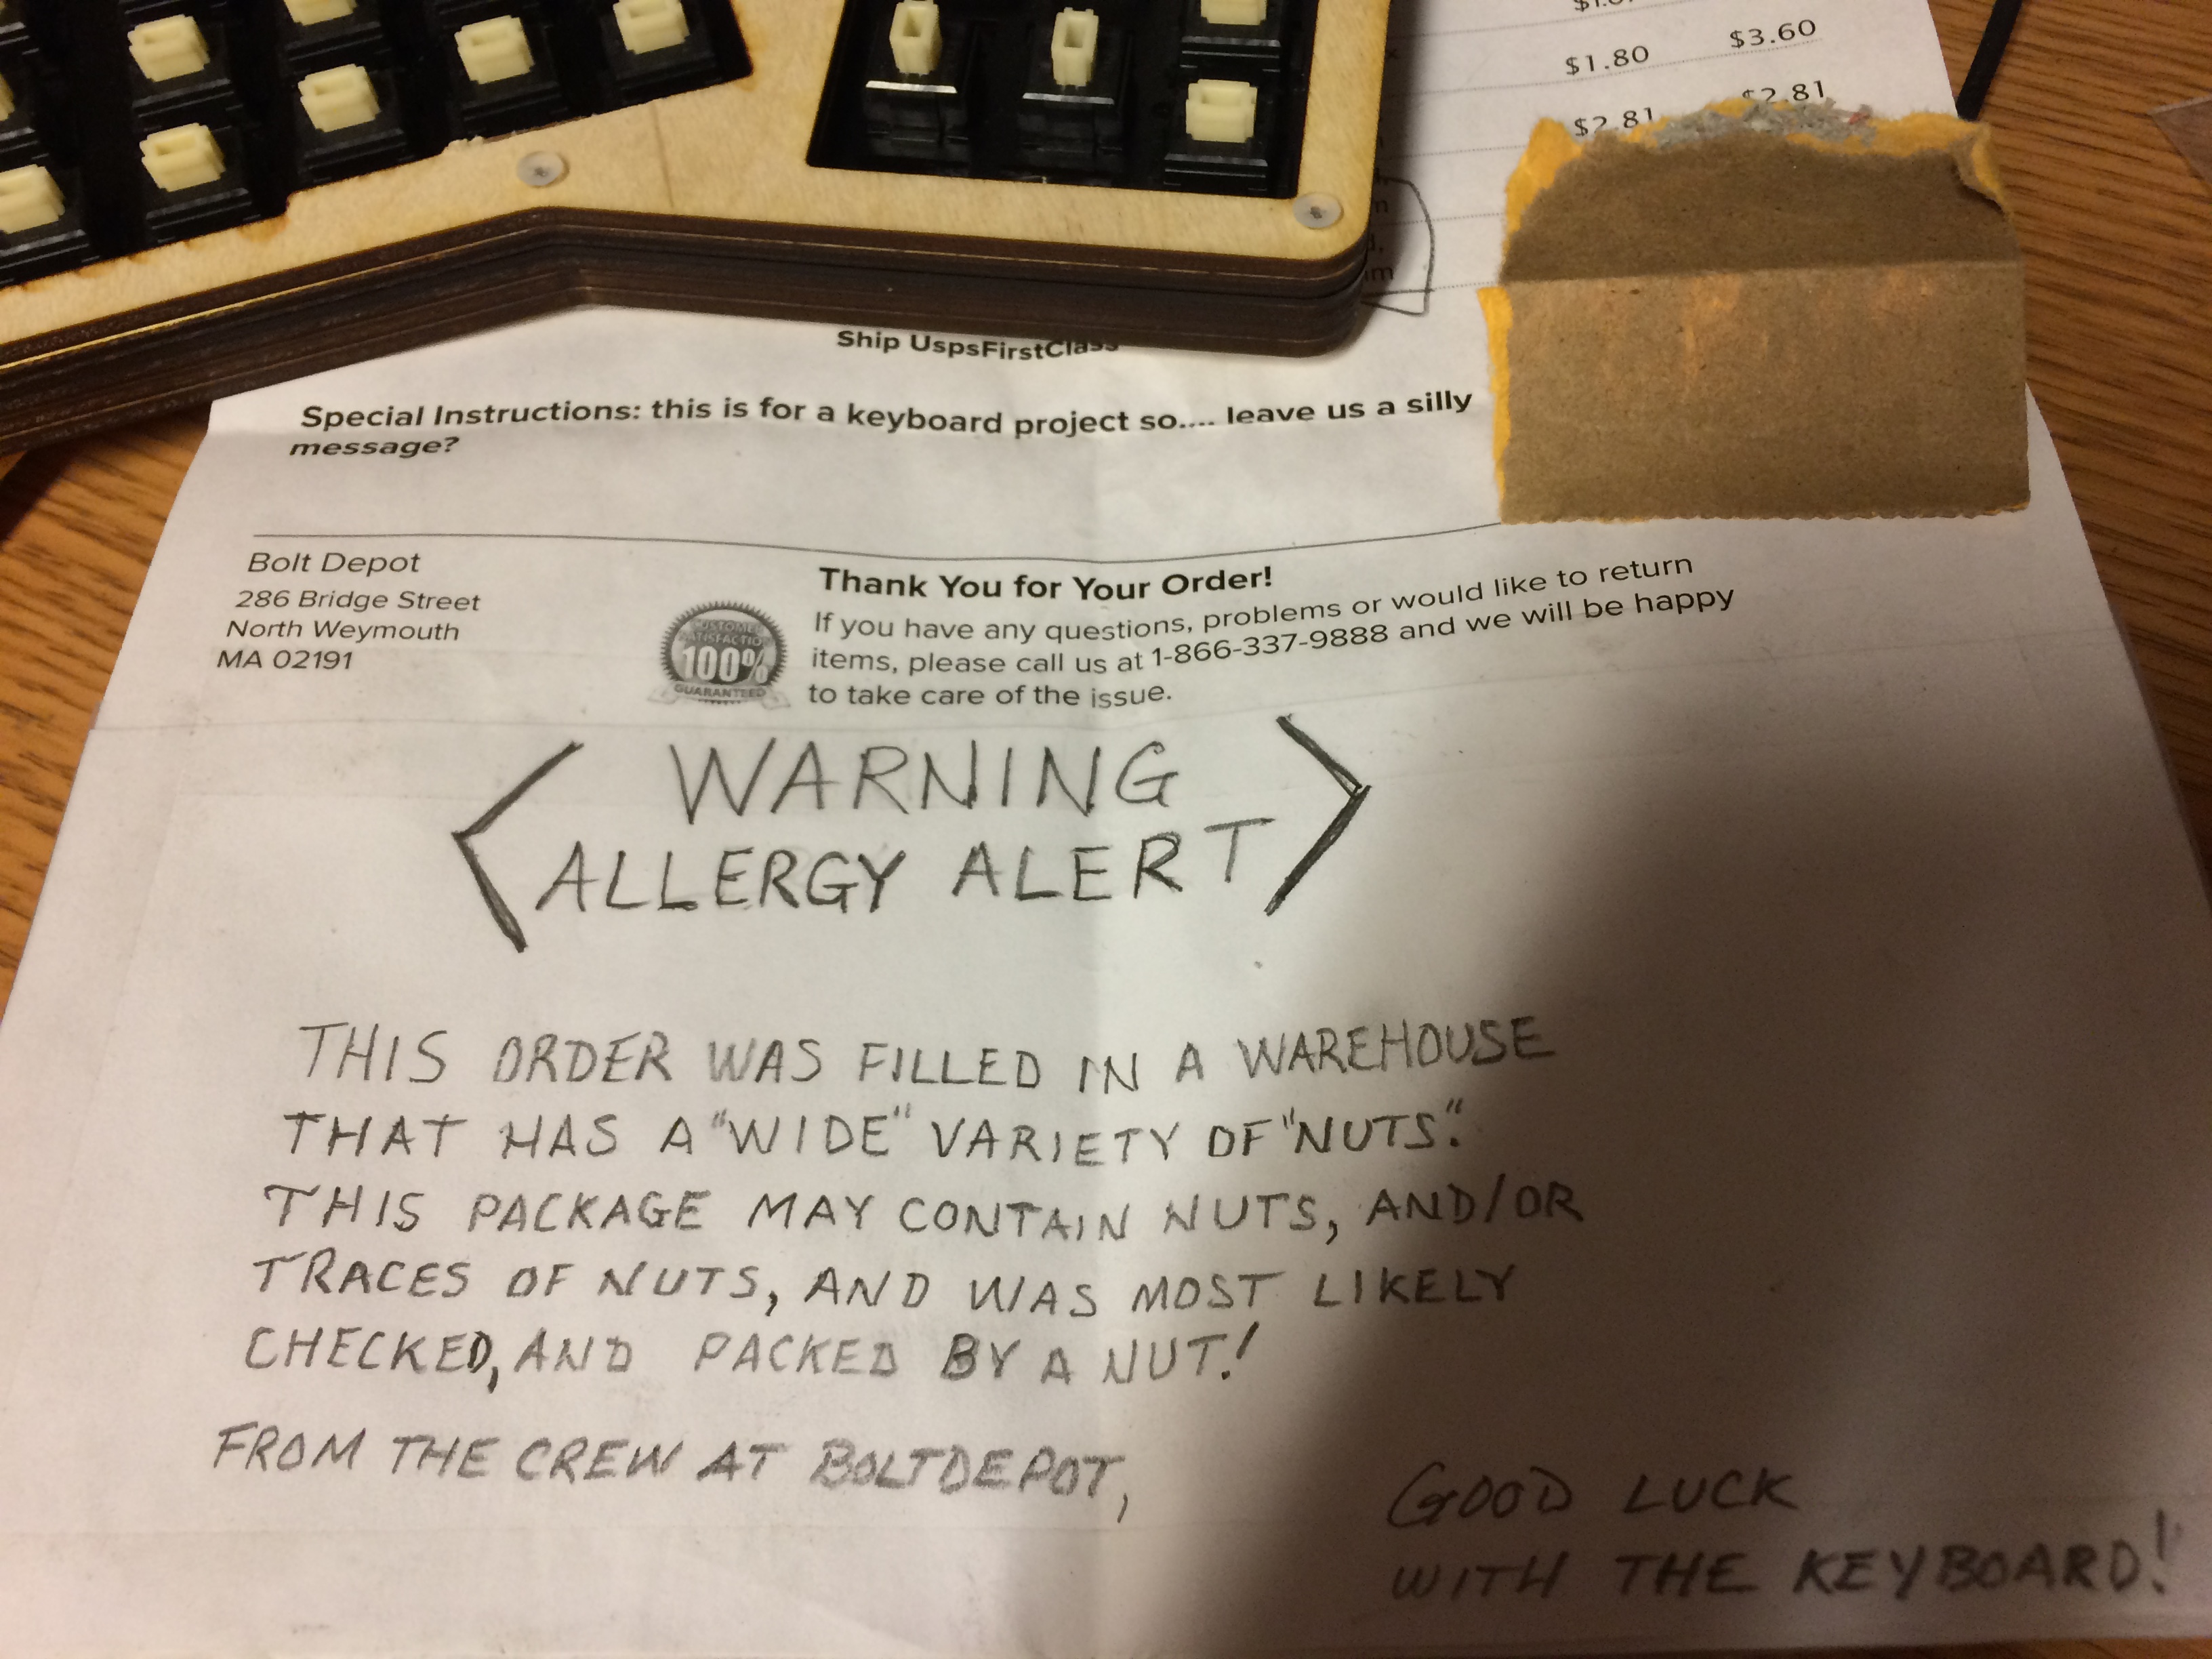 $1.80 $3.60
$2.81 $2.81
Ship UspsFirstClass
Special Instructions: this is for a keyboard project so.... leave us a silly
message?
Bolt Depot
286 Bridge Street
North Weymouth
MA 02191
CUSTOMER
SATISFACTION
100%
GUARANTEED
Thank You for Your Order!
If you have any questions, problems or would like to return
items, please call us at 1-866-337-9888 and we will be happy
to take care of the issue.
WARNING
ALLERGY ALERT
THIS ORDER WAS FILLED IN A WAREHOUSE
THAT HAS A "WIDE" VARIETY OF "NUTS".
THIS PACKAGE MAY CONTAIN NUTS, AND/OR
TRACES OF NUTS, AND WAS MOST LIKELY
CHECKED, AND PACKED BY A NUT!
FROM THE CREW AT BOLTDEPOT,
GOOD LUCK
WITH THE KEYBOARD!